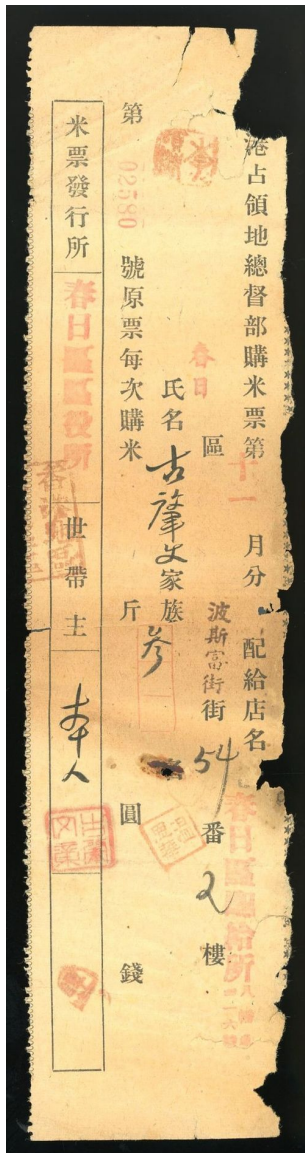 港占領地總督部購米票第十一月分 配給店名 春日區配給所
春日區 波斯富街街54番2樓
氏名 古肇文 家族 參
第02580號原票每次購米 斤 圓 錢
米票發行所 春日區區役所 世帶主 本人